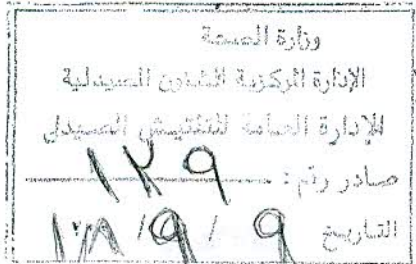 وزارة الصحة
الإدارة المركزية للشئون الصيدلية
الإدارة العامة للتفتيش الصيدلى
صادر رقم : ١٢٩
التاريخ ٩ / ٩ /